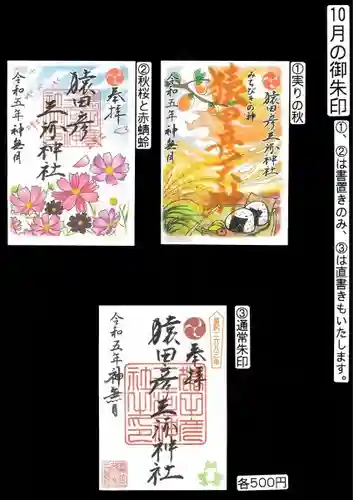 10月の御朱印
①、②は書置きのみ、③は直書きもいたします。
①実りの秋
みちびきの神
猿田彦三河神社
猿田彦大神
令和五年神無月
②秋桜と赤蜻蛉
奉拝
猿田彦三河神社
令和五年神無月
③通常朱印
奉拝
猿田彦三河神社
令和五年神無月
各500円